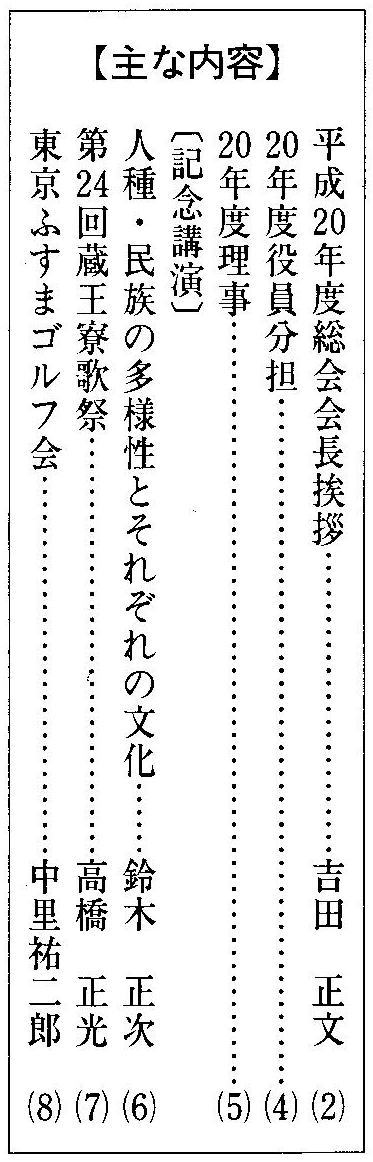 【主な内容】
平成20年度総会会長挨拶……………………吉田　正文　(2)
20年度役員分担……………………………………(4)
20年度理事…………………………………………(5)
〔記念講演〕
人種・民族の多様性とそれぞれの文化……鈴木　正次　(6)
第24回蔵王寮歌祭……………………………高橋　正光　(7)
東京ふすまゴルフ会…………………………中里祐二郎　(8)